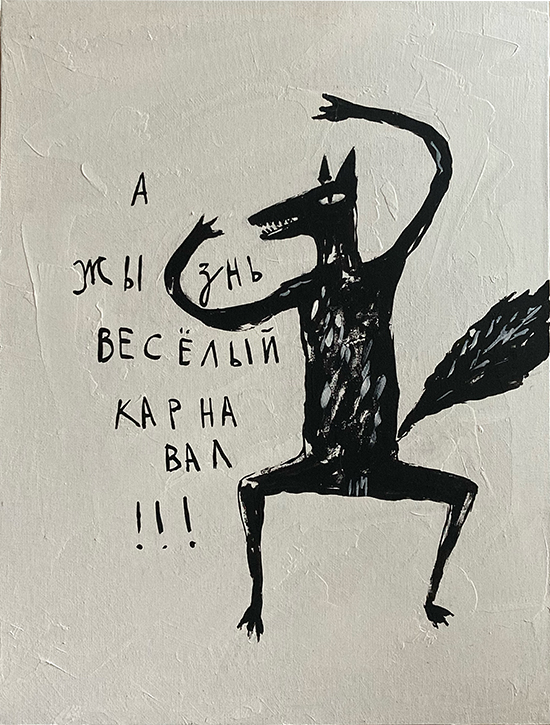 А
ЖЫЗНЬ
ВЕСЁЛЫЙ
КАРНА
ВАЛ
!!!